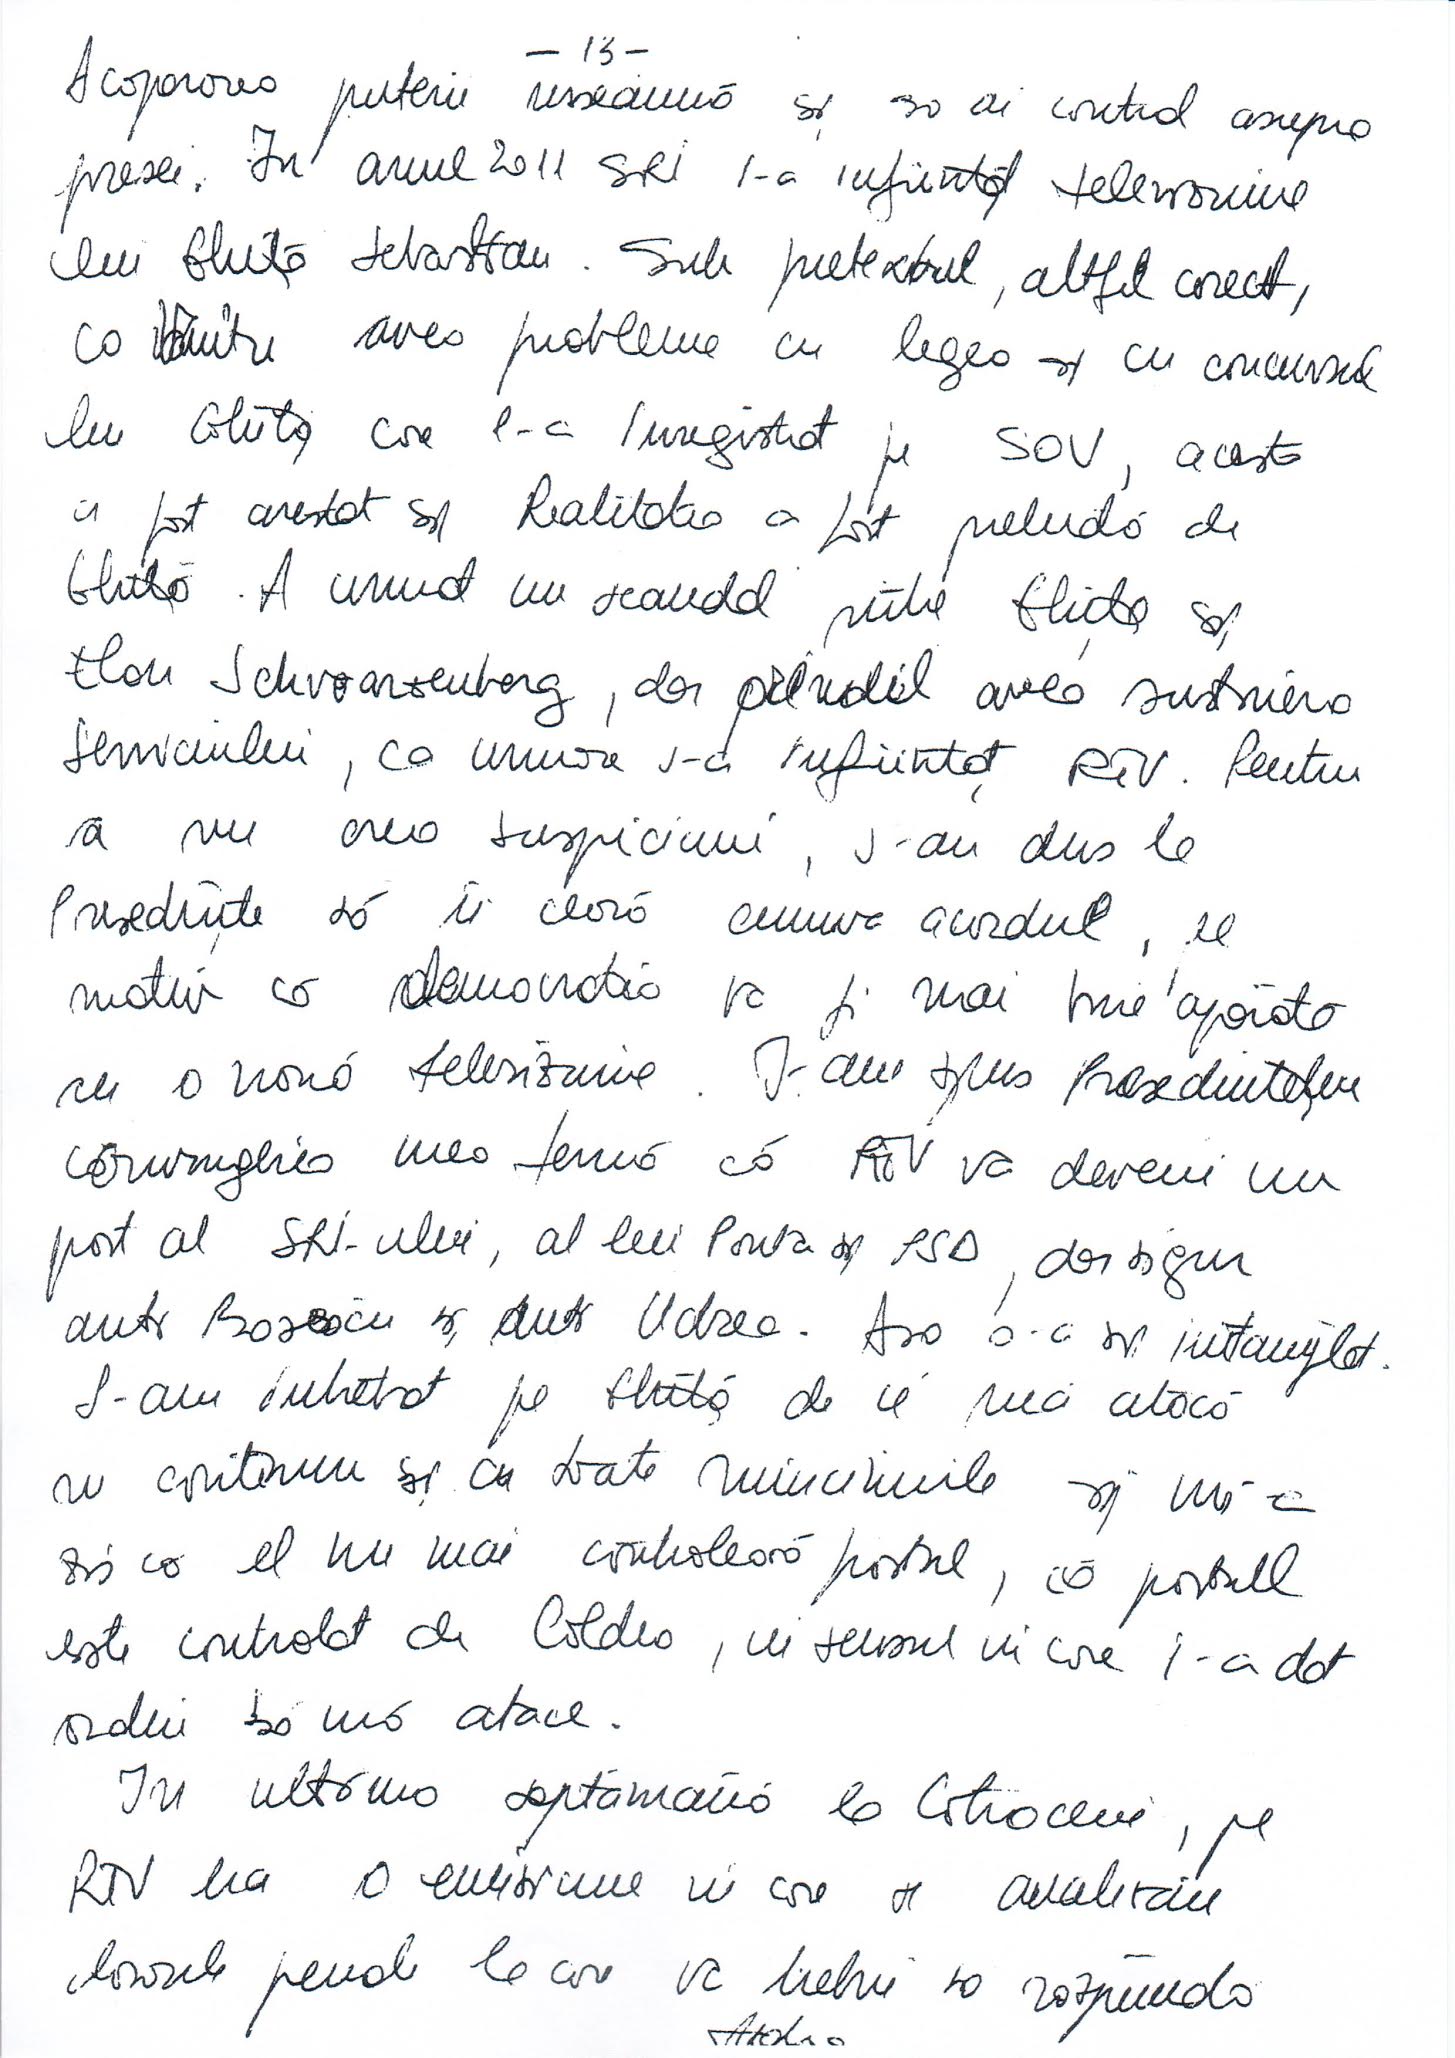 - 13 -
Acapararea puterii înseamnă și să ai control asupra
presei. În anul 2011 SRI i-a înființat televiziune
lui Ghiță Sebastian. Sub pretextul, altfel corect,
că Vântu avea probleme cu legea și cu concursul
lui Ghiță care l-a înregistrat pe SOV, acesta
a fost arestat și Realitatea a fost preluată de
Ghiță. A urmat un scandal între Ghiță și
Elan Schwarzenberg, dar avea susținerea
Serviciului, ca urmare s-a înființat RTV. Pentru
a nu crea suspiciuni, s-au dus la
Președinte să îi ceară cumva acordul, pe
motiv că democrația va fi mai bine apărată
cu o nouă televiziune. I-am spus Președintelui
convingerea mea fermă că RTV va deveni un
post al SRI-ului, al lui Ponta și PSD, dar sigur
anti Băsescu și anti Udrea. Așa s-a și întâmplat.
L-am întrebat pe Ghiță de ce mă atacă
în continuu și cu toate minciunile și mi-a
zis că el nu mai controlează postul, că postul
este controlat de Coldea, în sensul în care i-a dat
ordin să mă atace.
În ultima săptămână la Cotroceni, pe
RTV era o emisiune în care se analizau
dosarele penale la care va trebui să răspundă